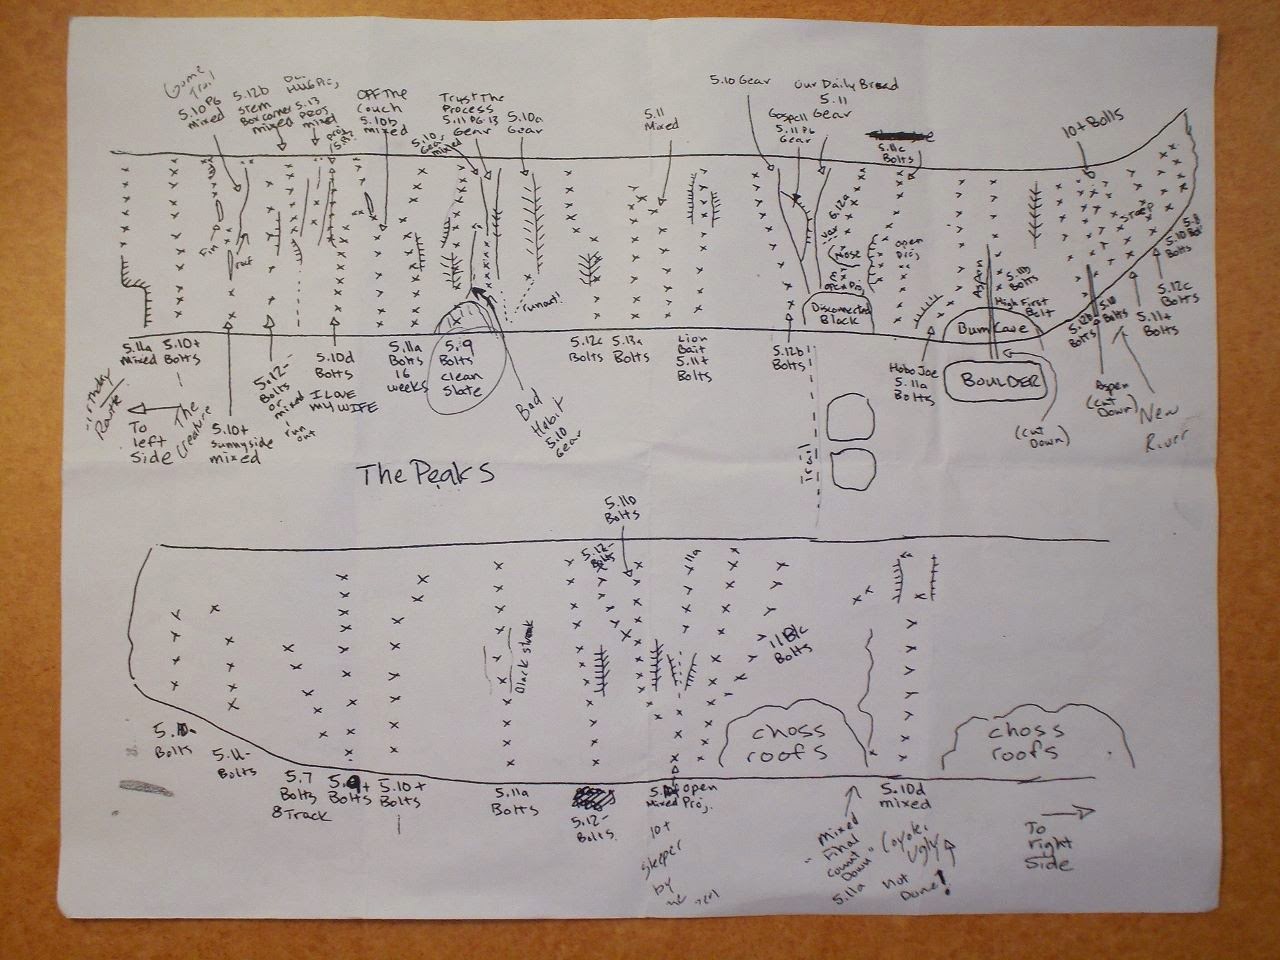 Game
Trail
5.10 PG
mixed
5.12b
Stem
Box corner
mixed
5.13
PROJ
mixed
proj
OFF The
Couch
5.10b
mixed
5.10
Gear mixed
Trust The
Process
5.11 PG-13
Gear
5.10a
Gear
5.11
Mixed
5.10 Gear
Our Daily Bread
5.11
Gear
Gospell
5.11 PG
Gear
5.11c
Bolts
10+ Bolts
Fin
roof
runout!
Nose
open
Proj
Disconnected
Block
Aspen
5.11b
Bolts
High First
Bolt
Bum Cave
BOULDER
(cut
Down)
Steep
5.12b
Bolts
5.10
Bolts
5.11+
Bolts
5.12c
Bolts
5.8
5.10
Aspen
(cut
Down)
New
River
5.11a
Mixed
5.10+
Bolts
Route
To
left
Side
The
Creature
5.10+
sunnyside
mixed
5.12-
Bolts
or
mixed
run
out
5.10d
Bolts
I LOVE
MY WIFE
5.11a
Bolts
16
weeks
5.9
Bolts
clean
Slate
Bad
Habit
5.10
Gear
5.12c
Bolts
5.13a
Bolts
Lion
Bait
5.11+
Bolts
5.12b
Bolts
Hobo Joe
5.11a
Bolts
Trail
The Peaks
5.11b
Bolts
5.12-
Bolts
11a
Black streak
11B/c
Bolts
choss
roofs
choss
roofs
Bolts
5.11-
Bolts
5.7
Bolts
8 Track
5.9+
Bolts
5.10+
Bolts
5.11a
Bolts
5.12-
Bolts
Mixed
10+
sleeper
by
open
Proj.
mixed
"Final
Count
Down"
5.11a
5.10d
mixed
Coyote
Ugly
not
Done!
To
right
Side